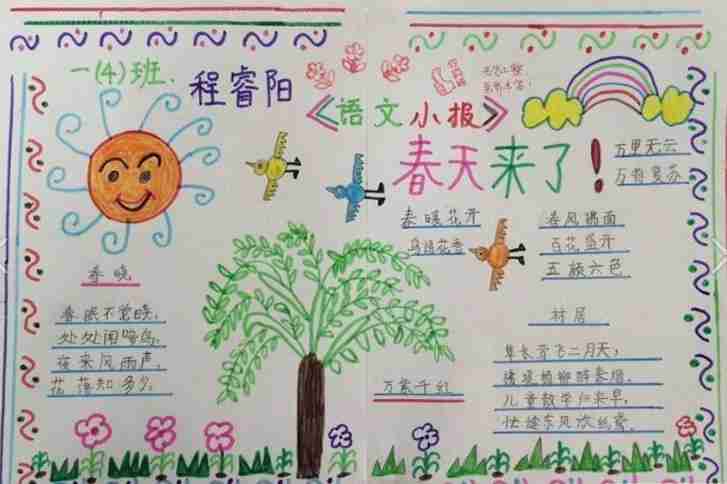 一(4)班、
程睿阳
《语文小报》
春天来了！
万里无云
万物复苏
春暖花开
鸟语花香
春风拂面
百花盛开
五颜六色
春晓
春眠不觉晓，
处处闻啼鸟，
夜来风雨声，
花落知多少。
万紫千红
村居
草长莺飞二月天，
拂堤杨柳醉春烟，
儿童散学归来早，
忙趁东风放纸鸢。